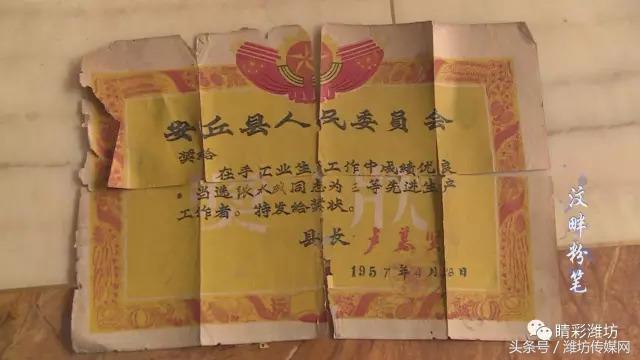 安丘县人民委員会
奖给
在手工业生产工作中成绩优良
当选 同志为三等先进生产
工作者。特发给奖状。
县长
1957年4月28日
奖状
汶畔粉笔
睛彩潍坊
头条号/潍坊传媒网